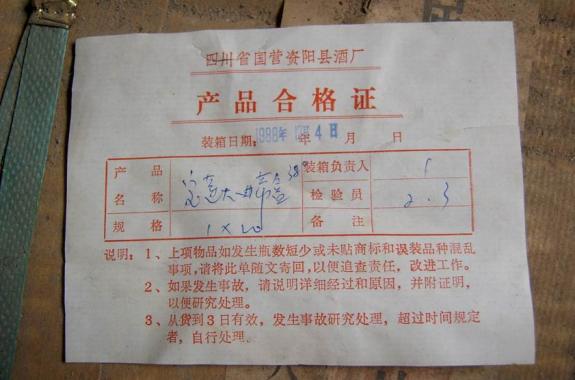 四川省国营资阳县酒厂
产品合格证
装箱日期: 1988年 4日 年 月 日
产品名称 38° 装箱负责人 1
检验员 2.3
规格 1×20 备注
说明: 1、上项物品如发生瓶数短少或未贴商标和误装品种混乱
事项,请将此单随文寄回,以便追查责任,改进工作。
2、如果发生事故,请说明详细经过和原因,并附证明,
以便研究处理。
3、从货到3日有效,发生事故研究处理,超过时间规定
者,自行处理.